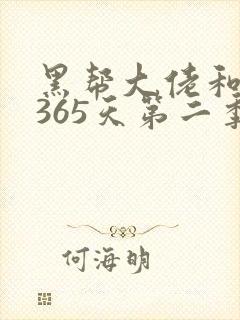 黑帮大佬和
365天第二季
何海明